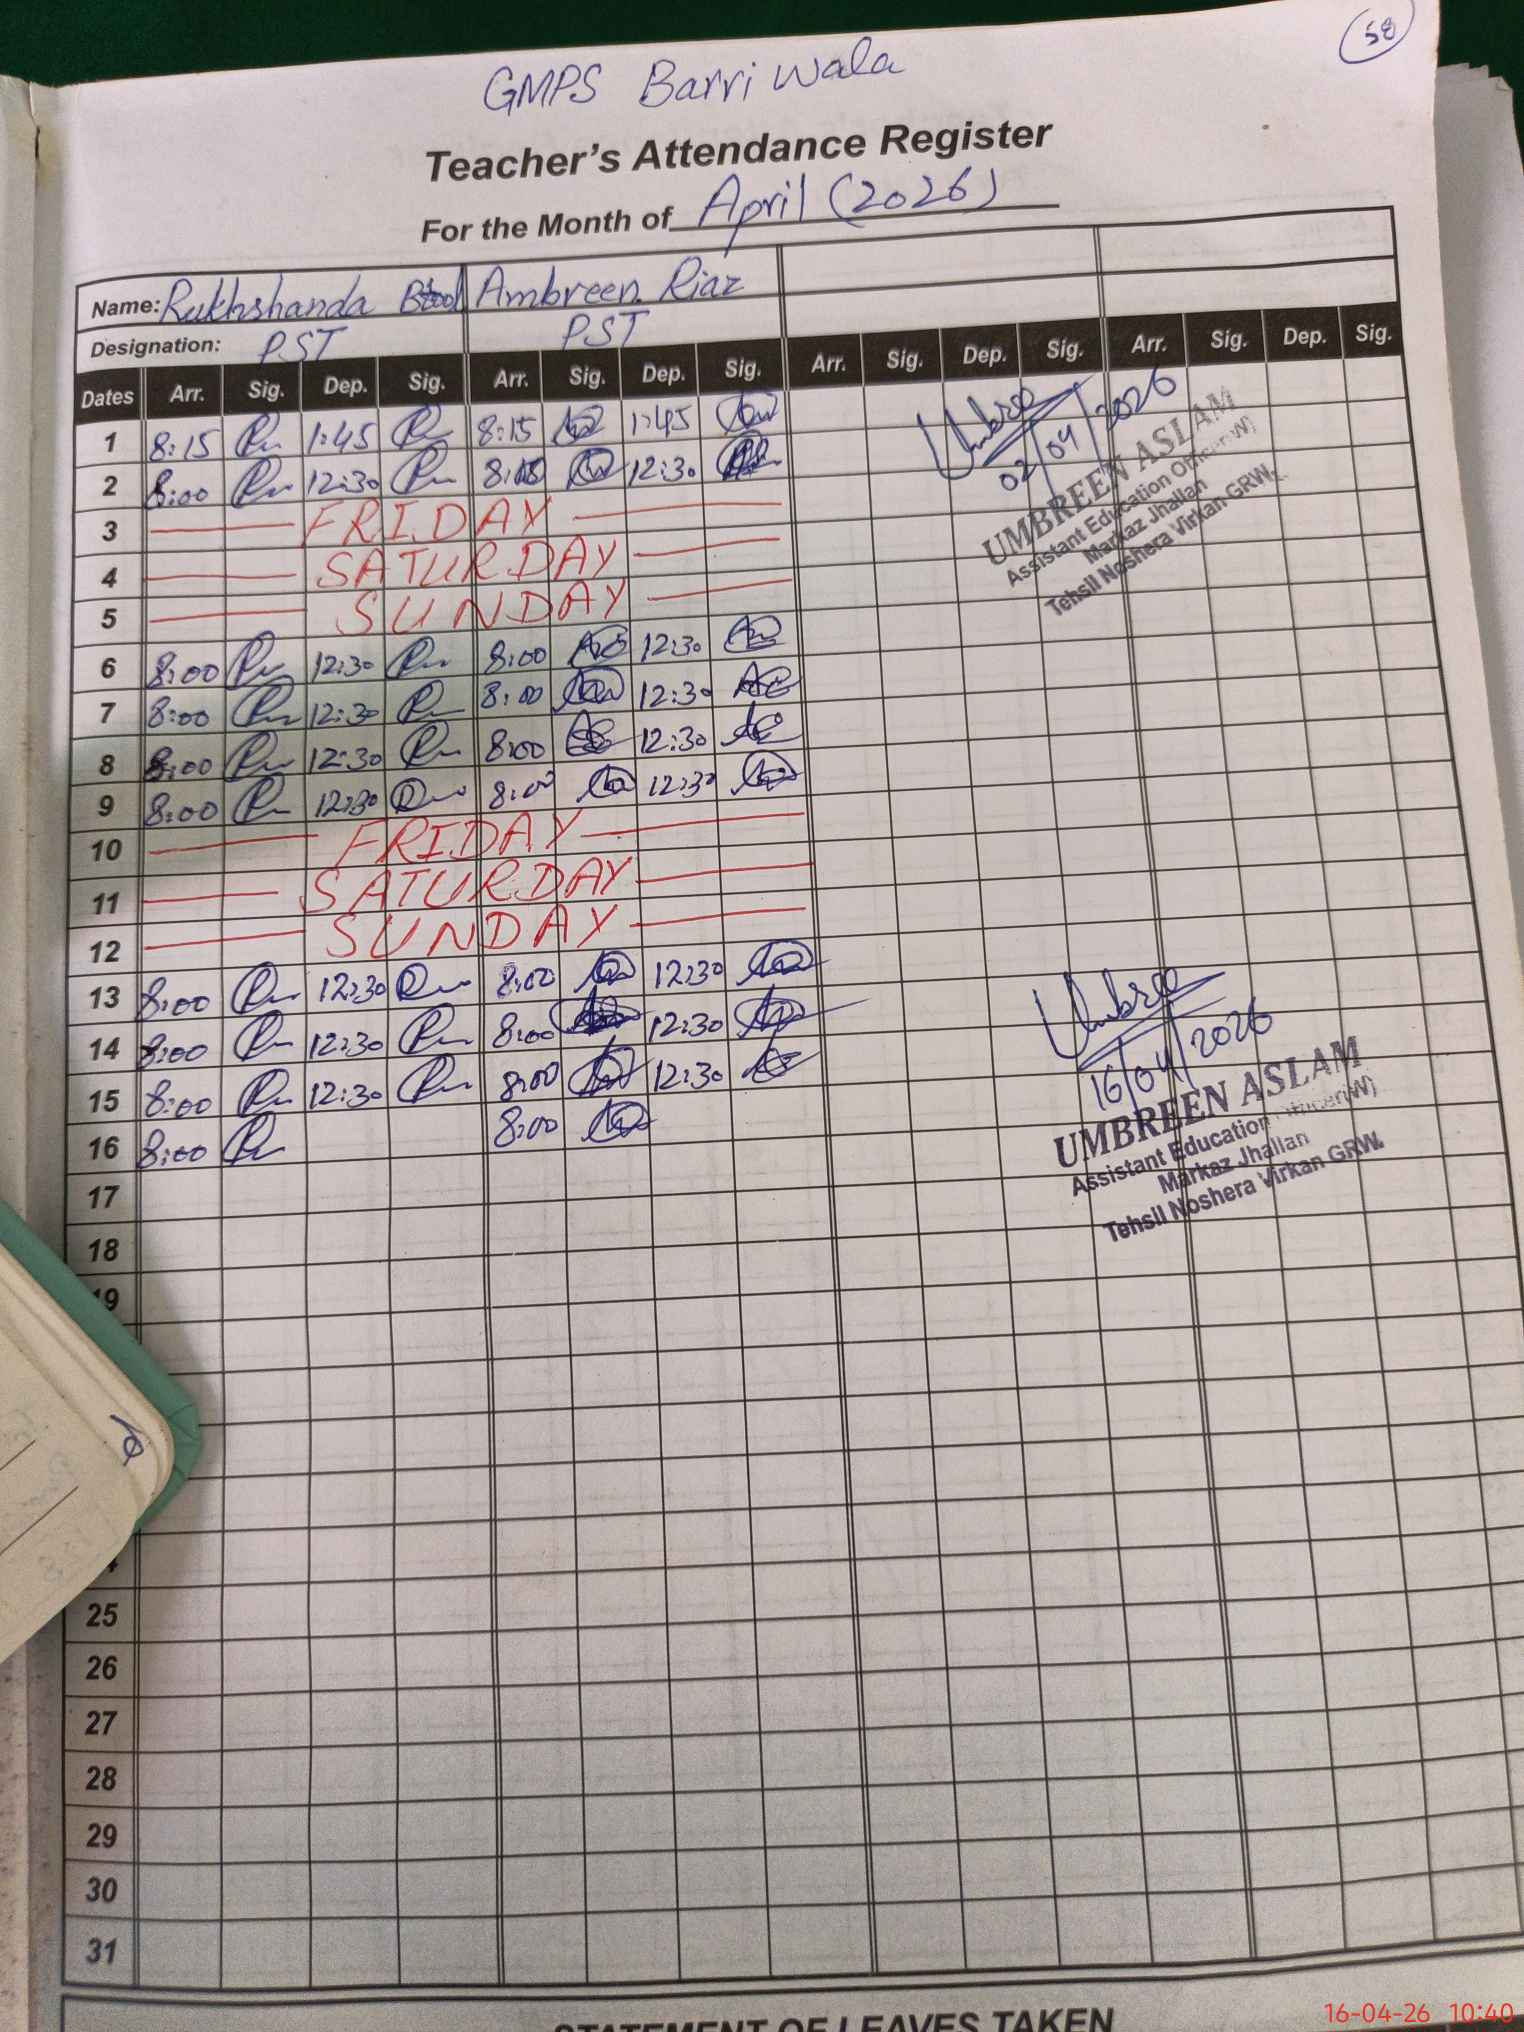 58
GMPS Barri Wala
Teacher's Attendance Register
For the Month of April (2026)
Name: Rukhshanda Ambreen Riaz
Designation: PST PST
Dates Arr. Sig. Dep. Sig. Arr. Sig. Dep. Sig. Arr. Sig. Dep. Sig. Arr. Sig. Dep. Sig.
1 8:15 1:45 8:15 1:45
2 8:00 12:30 12:30
02/04/2026
UMBREEN ASLAM
Assistant Education Officer(W)
Markaz Jhallan
Tehsil Noshera Virkan GRW.
3 FRIDAY
4 SATURDAY
5 SUNDAY
6 8:00 12:30 8:00 12:30
7 8:00 12:30 8:00 12:30
8 8:00 12:30 8:00 12:30
9 8:00 12:30 8:00 12:30
10 FRIDAY
11 SATURDAY
12 SUNDAY
13 8:00 12:30 8:00 12:30
14 8:00 12:30 8:00 12:30
15 8:00 12:30 8:00 12:30
16 8:00 8:00
16/04/2026
UMBREEN ASLAM
Assistant Education Officer(W)
Markaz Jhallan
Tehsil Noshera Virkan GRW.
17
18
19
25
26
27
28
29
30
31
STATEMENT OF LEAVES TAKEN
16-04-26 10:40